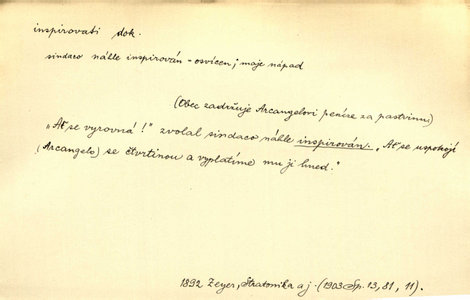 inspirovati dok.
sindaco náhle inspirován - osvícen; maje nápad
(Obec zadržuje Arcangelovi peníze za pastvinu)
„Ať se vyrovná!" zvolal sindaco náhle inspirován. „Ať se uspokojí
(Arcangelo) se čtvrtinou a vyplatíme mu ji hned."
1892 Zeyer, Stratonika a j. (1903 Sp. 13, 81, 11).